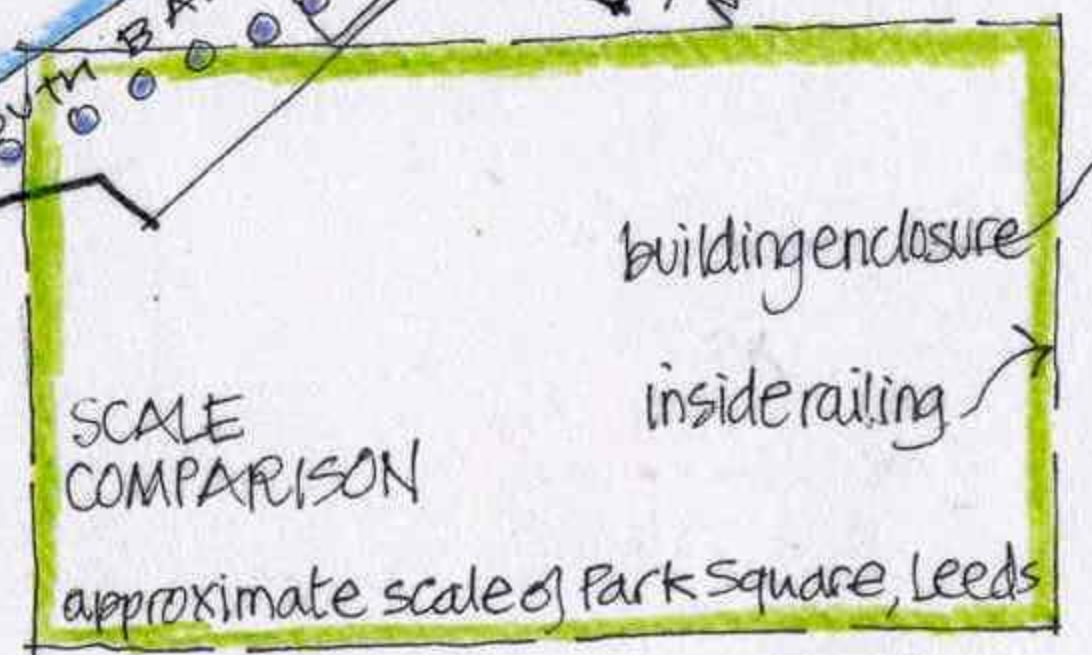 building enclosure
inside railing
SCALE
COMPARISON
approximate scale of Park Square, Leeds